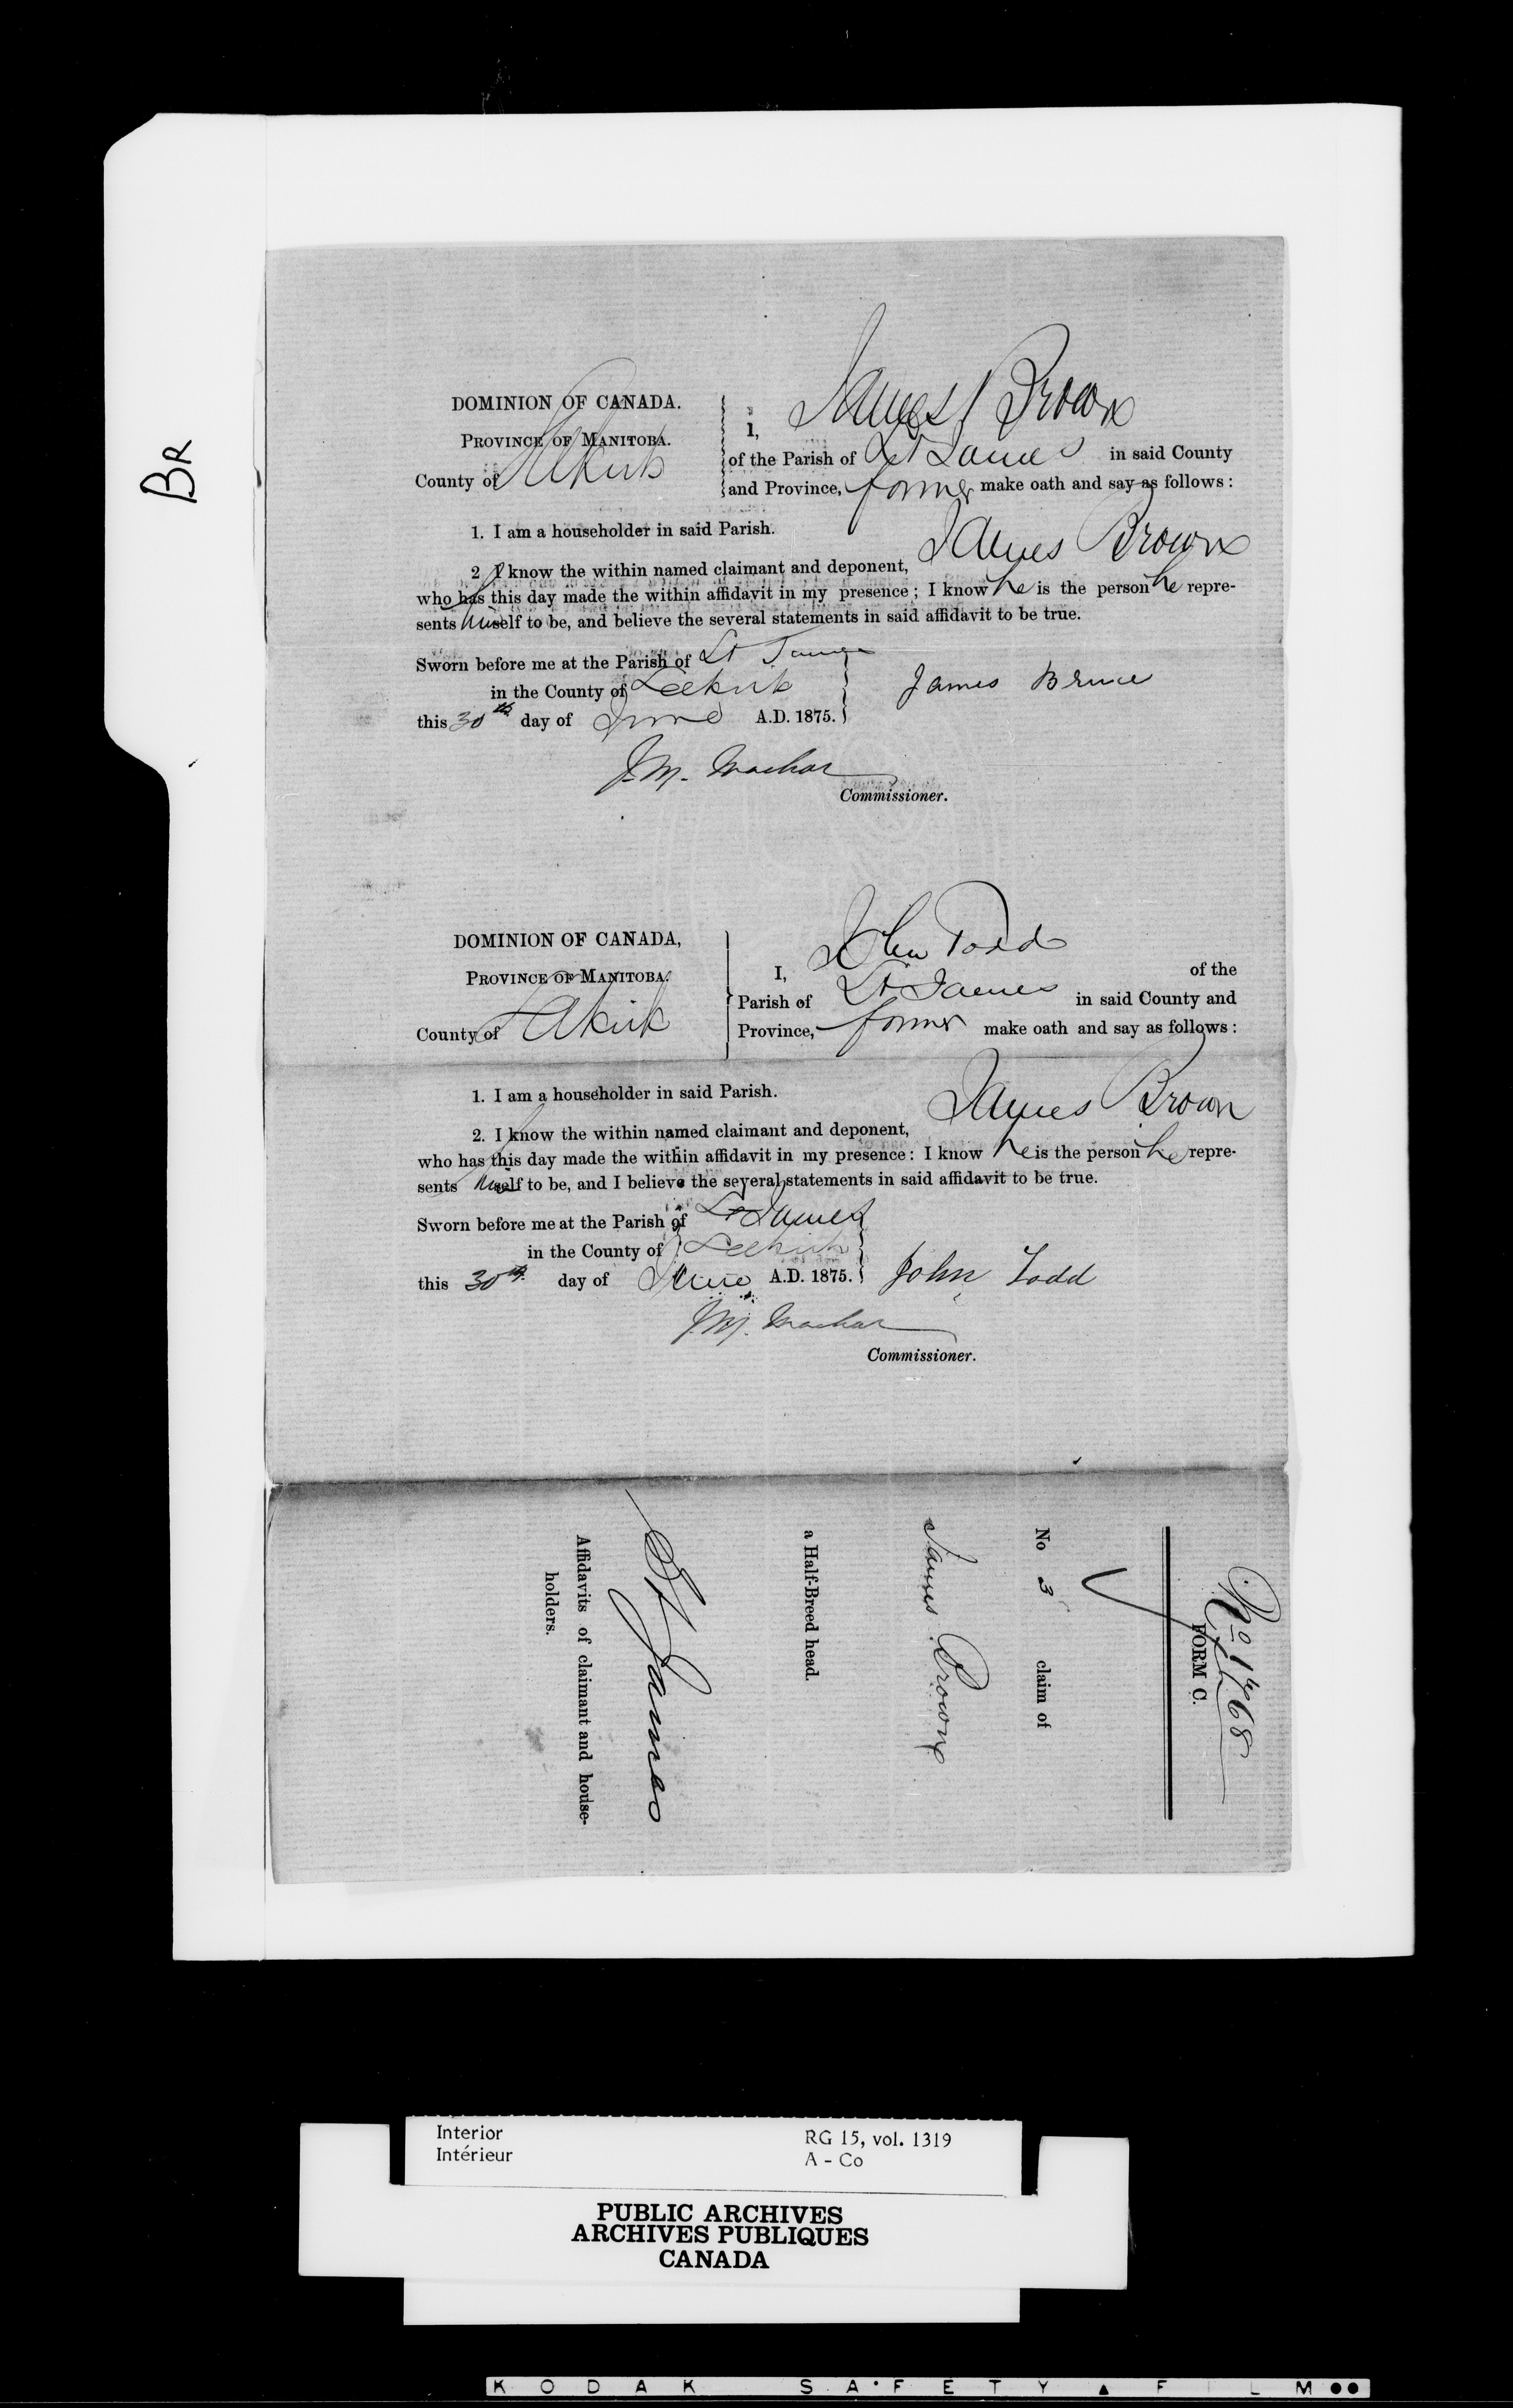 BR
DOMINION OF CANADA.
PROVINCE OF MANITOBA.
County of Selkirk
I, James Brown
of the Parish of St James in said County
and Province, farmer make oath and say as follows:
1. I am a householder in said Parish.
2 I know the within named claimant and deponent, James Brown
who has this day made the within affidavit in my presence; I know he is the person he repre-
sents himself to be, and believe the several statements in said affidavit to be true.
Sworn before me at the Parish of St James
in the County of Selkirk
this 30th day of June A.D. 1875.
James Bruce
J. M. Machar
Commissioner.
DOMINION OF CANADA,
PROVINCE OF MANITOBA.
County of Selkirk
I, John Todd of the
Parish of St James in said County and
Province, farmer make oath and say as follows:
1. I am a householder in said Parish.
2. I know the within named claimant and deponent, James Brown
who has this day made the within affidavit in my presence: I know he is the person he repre-
sents himself to be, and I believe the several statements in said affidavit to be true.
Sworn before me at the Parish of St James
in the County of Selkirk
this 30th day of June A.D. 1875.
John Todd
J. M. Machar
Commissioner.
No 1768
FORM C.
No 3 claim of
James Brown
a Half-Breed head.
St James
Affidavits of claimant and house-
holders.
Interior
Intérieur
RG 15, vol. 1319
A - Co
PUBLIC ARCHIVES
ARCHIVES PUBLIQUES
CANADA
KODAK SAFETY FILM